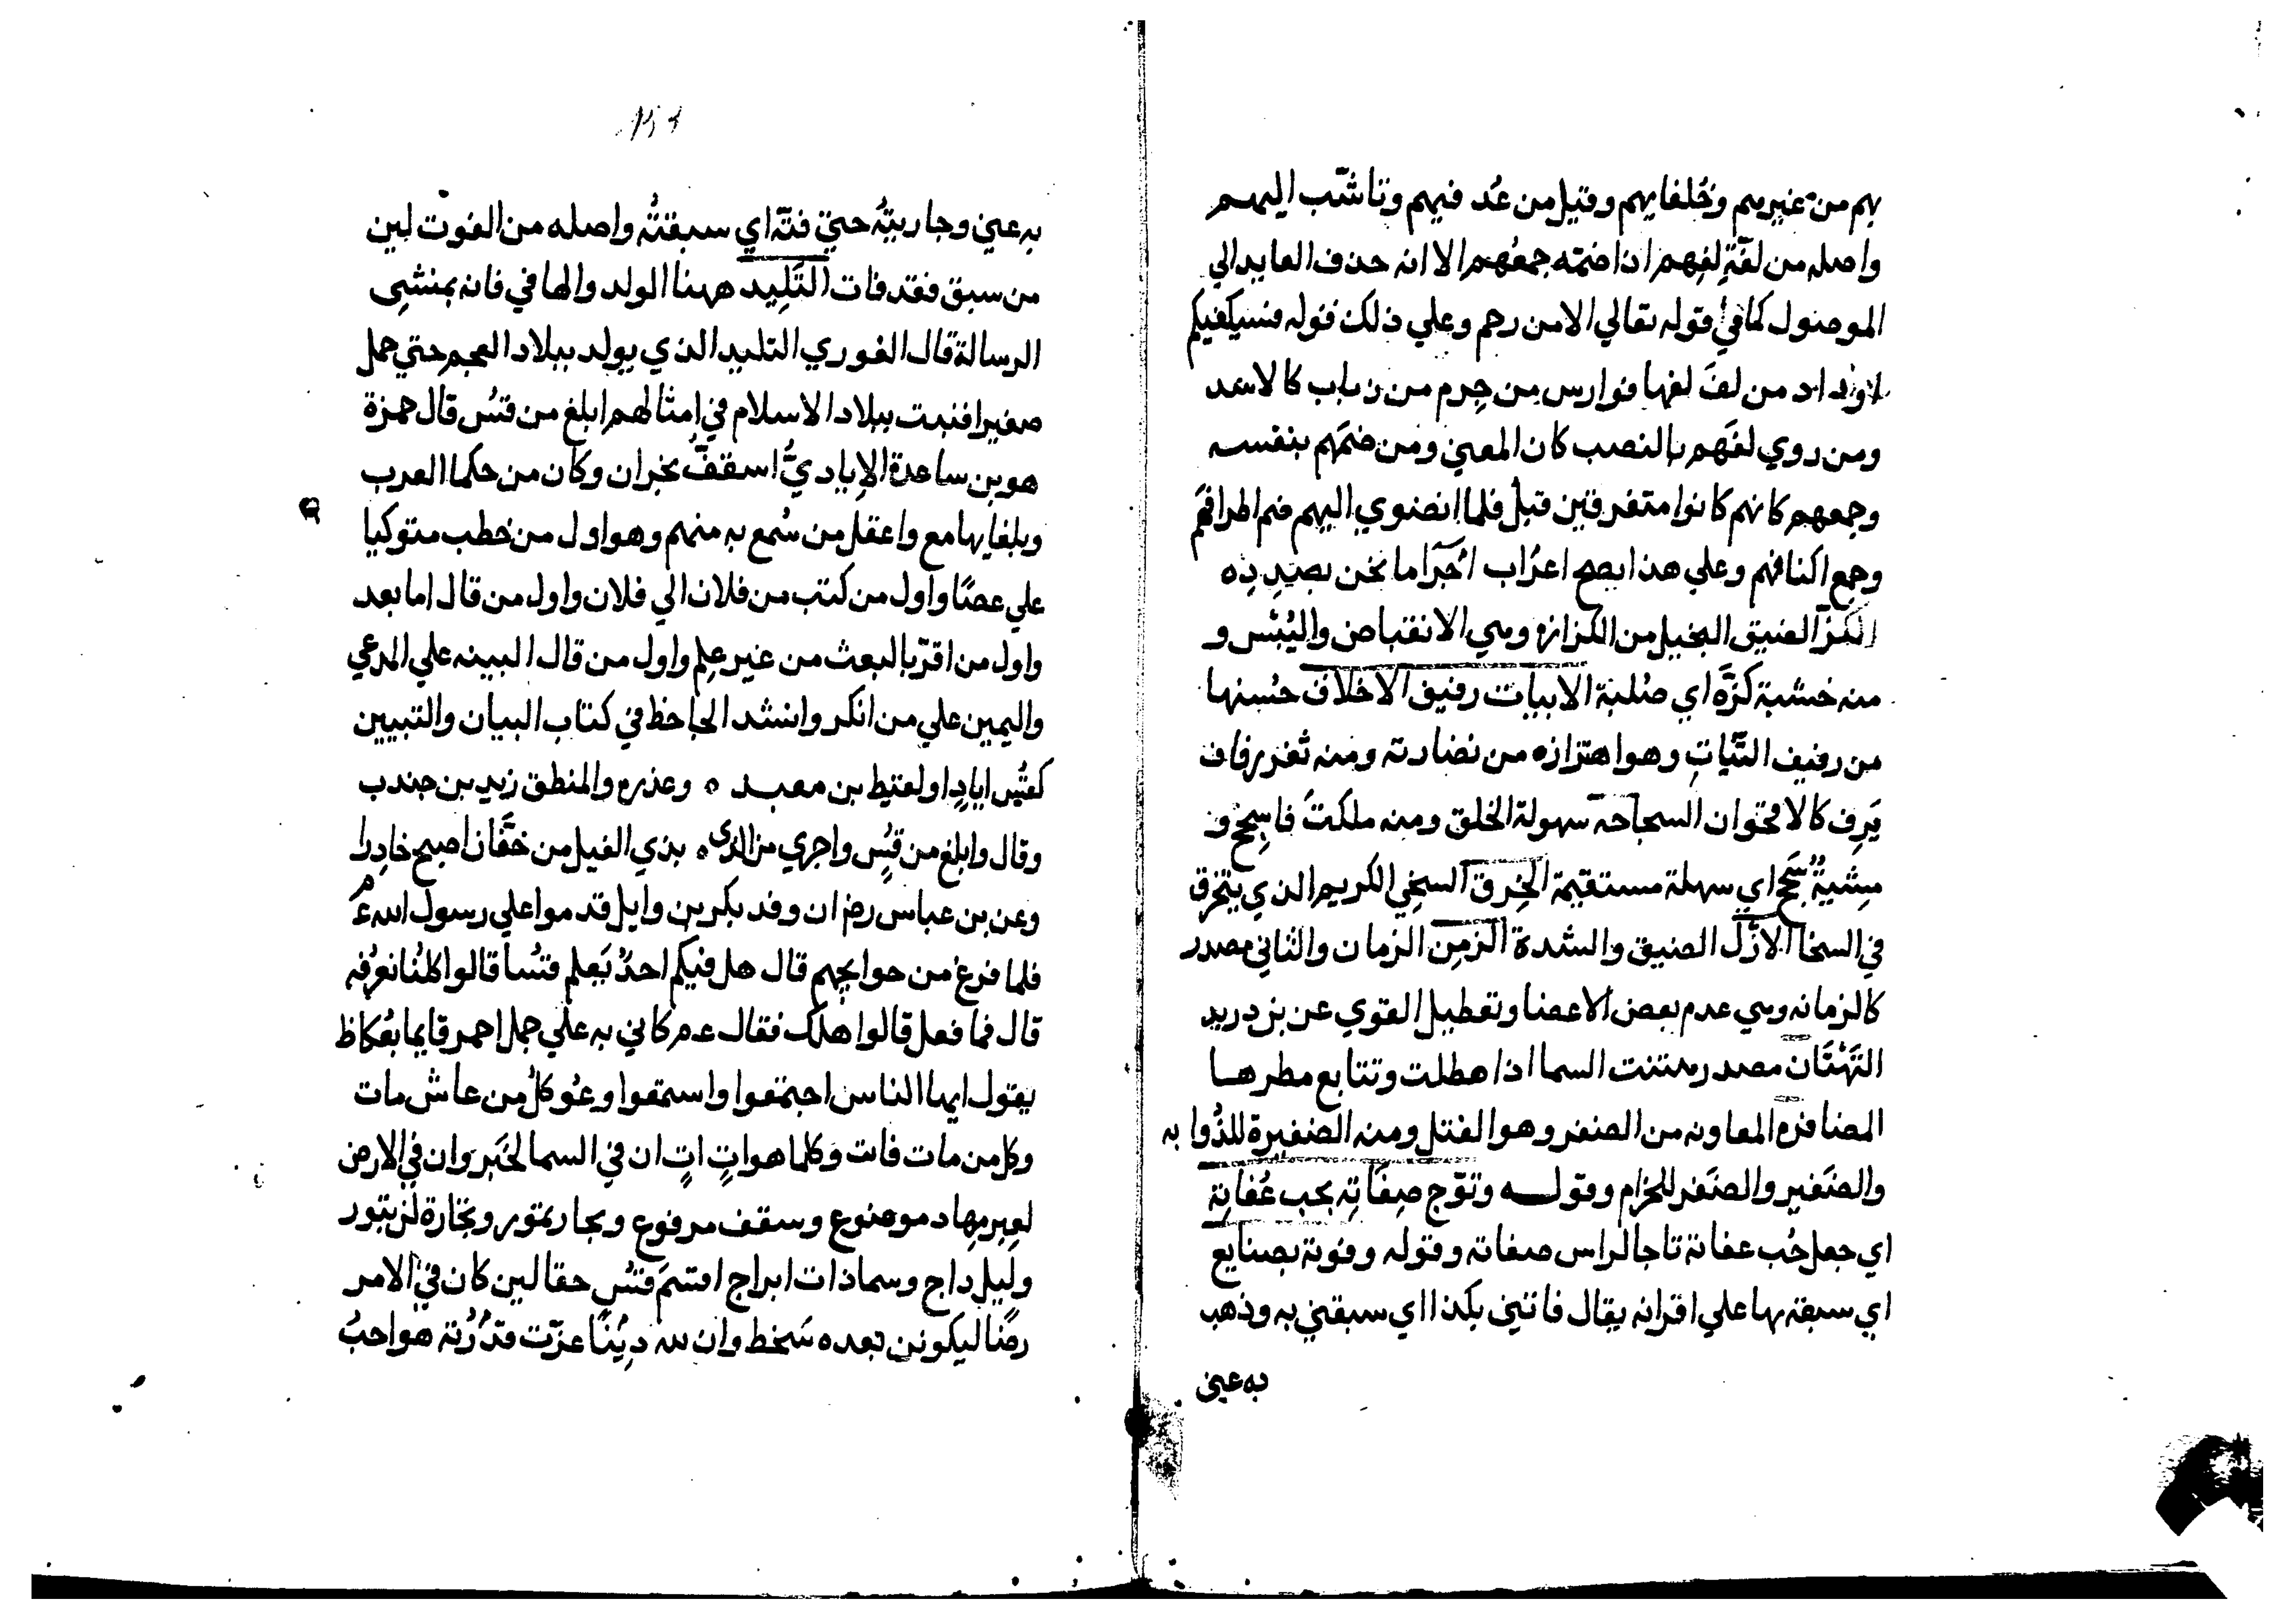 بهم من غيرهم وخُلفايهم وقيل من عُد فيهم وتاشّب اليهم
واصله من لفّة لفهم اذا ضمّه جمعُهم الا انه حذف العايد الي
الموصول كما في قوله تعالي الا من رحم وعلي ذلك قوله فسيكفيكم
من لفَ لفها فوارس من جرم من زباب كالاسد
ومن روي لفَهم بالنصب كان المعني ومن ضمَهم بنفسه
وجمعهم كانهم كانوا متفرقين قبل فلما انضوي اليهم ضم اطرافهَم
وجمع اكنافهم وعلي هذا يصح اعرُاب اخَرَ ما نحن بصَيدِدِه
الكزّ الضيق البخيل من الكزازه وهي الانقباض واليُبْس و
منه خشبة كزَّه اي صُلبة الابيات رفيف الاخلاق حُسنها
من رفيف النّبات وهو اهتزازه من نضارته ومنه ثغر رفاف
يَرِف كالاقحوان السجاحه سهولة الخلق ومنه ملكتَ فاسجح و
مِشيةٌ سُجحُ اي سهلة مستقيمة الخِرق السخي الكريم الذي يتخرق
في السخا الازْل الضيق والشدة الزمِن الزمان والثاني مصدر
كالزمانه وهي عدم بعض الاعضا وتعطيل القوي عن بن دريد
التَهْتَان مصدر هتنت السما اذا هطلت وتتابع مطرها
المضافره المعاونه من الضفر وهو الفتل ومنه الضفيرة للذُوابه
والضَفير والضَفر للحزام وقوله وتوّج صِفَاتِهِ بحب عُفاتِه
اي جعل حُب عفاته تاجا لراس صفاته وقوله وفوته بصنايع
اي سبقه بها علي اقرانه يقال فاتني بكذا اي سبقني به وذهب
به عني
به عني وجاريتُه حتي فتّه اي سبقتُه واصله من الفوت لين
من سبق فقد فات التَلِيد ههنا الولد والها في فانه بمنشي
الرسالة قال الغوري التليد الذي يولد ببلاد العجم حتي حمل
صغيرا فنبت ببلاد الاسلام في امثالهم ابلغ من قسُ قال حمزة
هو بن ساعدة الاياديُّ اسقفُّ نجران وكان من حكما العرب
وبلغايها مع واعقل من سُمع به منهم وهو اول من خطب متوكيا
علي عصًا واول من كتب من فلان الي فلان واول من قال اما بعد
واول من اقرّ بالبعث من غير علِم واول من قال البينه علي المدعي
واليمين علي من انكر وانشد الجاحظ في كتاب البيان والتبيين
كقُسِ ايادٍ او لقيط بن معبد ه وعذره والمنطق زيد بن جندب
وقال وابلغ من قُسٍ واجري من الذي ه بذي الغيل من خفَّان اصبح خادِرا
وعن بن عباس رض ان وفد بكر بن وايل قدموا علي رسول الله عم
فلما فرغ من حوايجهم قال هل فيكم احدٌ يَعلم قسُا قالوا كلنُا نعرُفه
قال فما فعل قالوا هلك فقال عم كاني به علي جمل احمر قايما بعُكاظ
يقول ايها الناس اجتمعوا واستمعوا وعُو كل من عاش مات
وكل من مات فات وكلما هو اتٍ اتٍ ان في السما لخَبر وان في الارض
لعِبر مهاد موضوع وسقف مرفوع وبحار تمور وتجارة لن تبور
وليل داج وسما ذات ابراج اقسَم قسُ حقا لين كان في الامر
رضًا ليكونن بعده سَخط وان لله ديُنًا عزّت قدُرُته هو احبُ